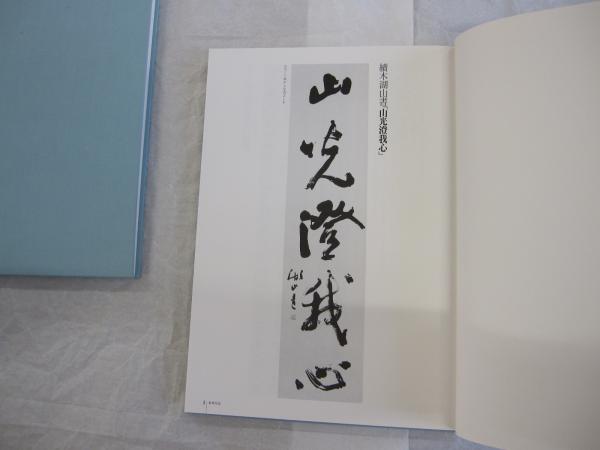 續木湖山書「山光澄我心」
山光澄我心
湖山書